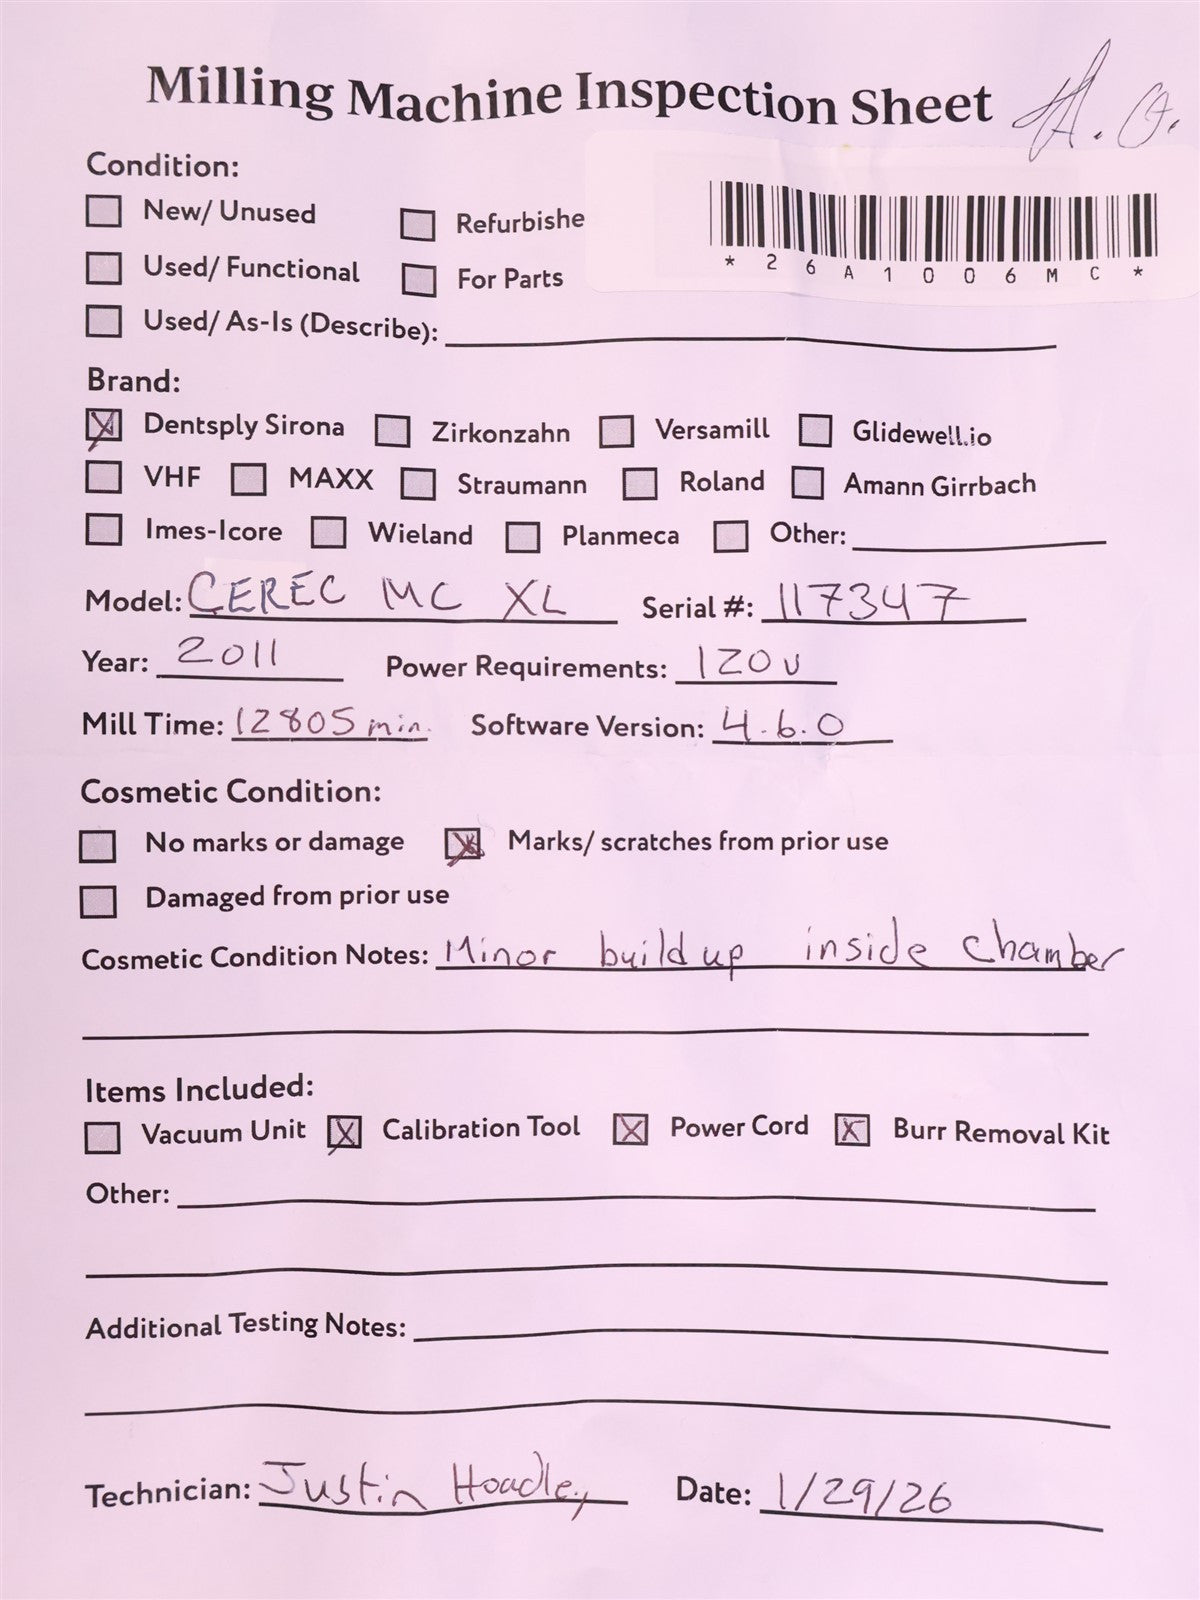 Milling Machine Inspection Sheet H. O.
Condition:
New/ Unused Refurbishe
*26A1006MC*
Used/ Functional For Parts
Used/ As-Is (Describe):
Brand:
Dentsply Sirona Zirkonzahn Versamill Glidewell.io
VHF MAXX Straumann Roland Amann Girrbach
Imes-Icore Wieland Planmeca Other:
Model: CEREC MC XL Serial #: 117347
Year: 2011 Power Requirements: 120v
Mill Time: 12805 min. Software Version: 4.6.0
Cosmetic Condition:
No marks or damage Marks/ scratches from prior use
Damaged from prior use
Cosmetic Condition Notes: Minor build up inside chamber
Items Included:
Vacuum Unit Calibration Tool Power Cord Burr Removal Kit
Other:
Additional Testing Notes:
Technician: Justin Hoadley Date: 1/29/26